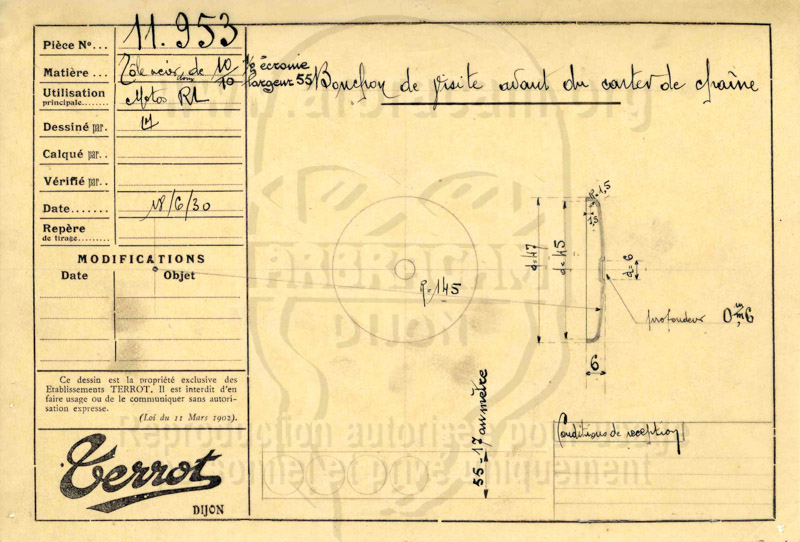 Pièce N°... 11.953
Matière... Tôle noire doux de 10/10 1/2 écrouie
largeur 55
Utilisation principale....... Motos RL
Dessiné par.
Calqué par..
Vérifié par..
Date....... 18/6/30
Repère de tirage........
MODIFICATIONS
Date Objet
Ce dessin est la propriété exclusive des
Etablissements TERROT. Il est interdit d'en
faire usage ou de le communiquer sans autori-
sation expresse.
(Loi du 11 Mars 1902).
Terrot
DIJON
Bouchon de visite avant du carter de chaîne
R=145
d=47
d=45
R=1,5
1,5
d=6
profondeur 0m/m6
6
55-17 au mètre
Conditions de reception
www.arbracam.org
ARBRACAM
DIJON
Reproduction autorisée pour usage
personnel et privé uniquement